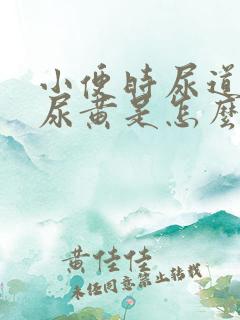 小便时尿道
尿黄是怎麼
黄佳佳
未经同意禁止转载